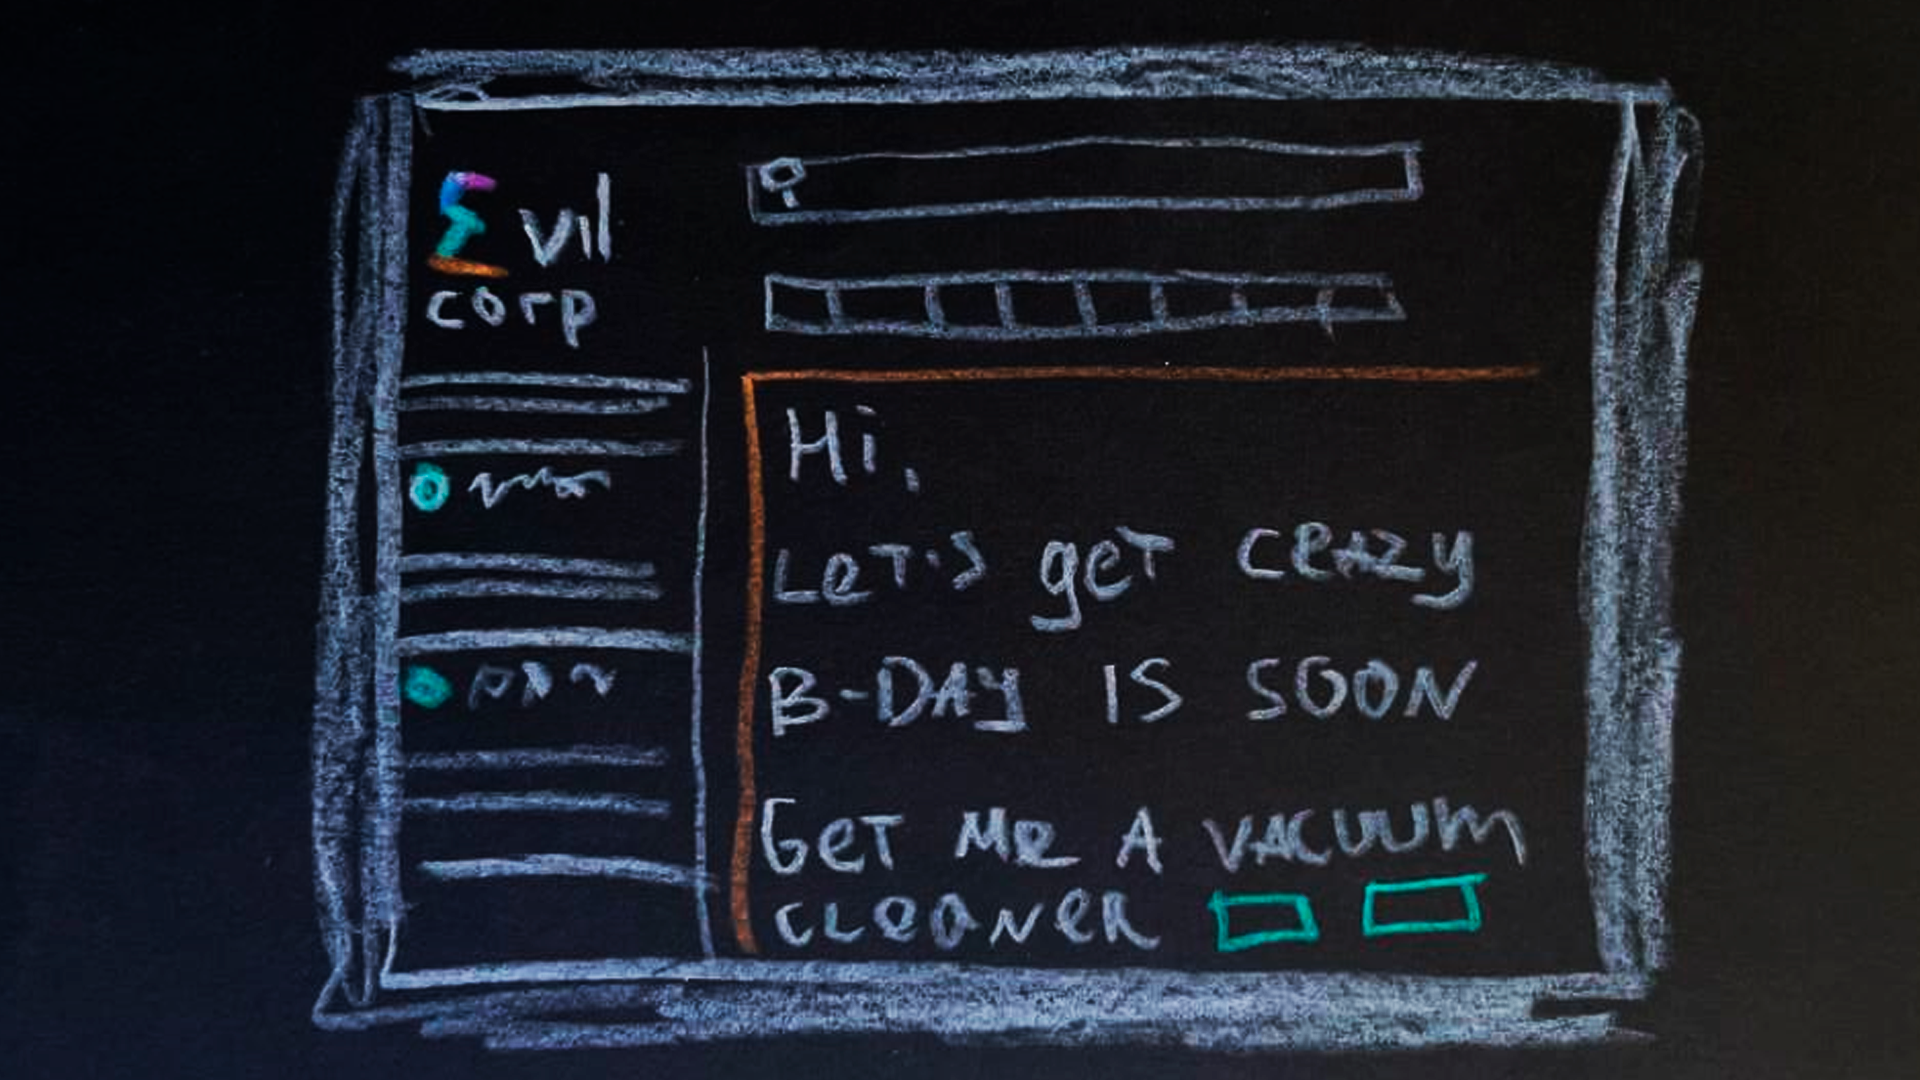 Evil
corp
Hi,
LeT's geT cRazy
B-DAy IS SOON
GeT Me A VACUUm
CLeaNeR